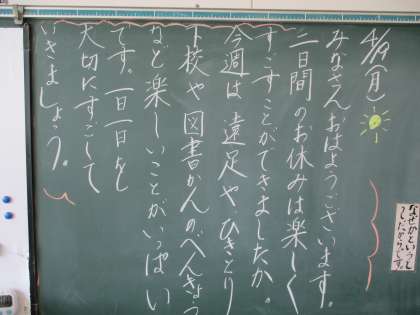 (月)
みなさんおはようございます。
二日間のお休みは楽しく
すごすことができましたか。
今週は、遠足や、ひきとり
下校や図書かんのべんきょう
など楽しいことがいっぱい
です。一日一日を
大切にすごして
いきましょう。
なぜかというと
したからです。